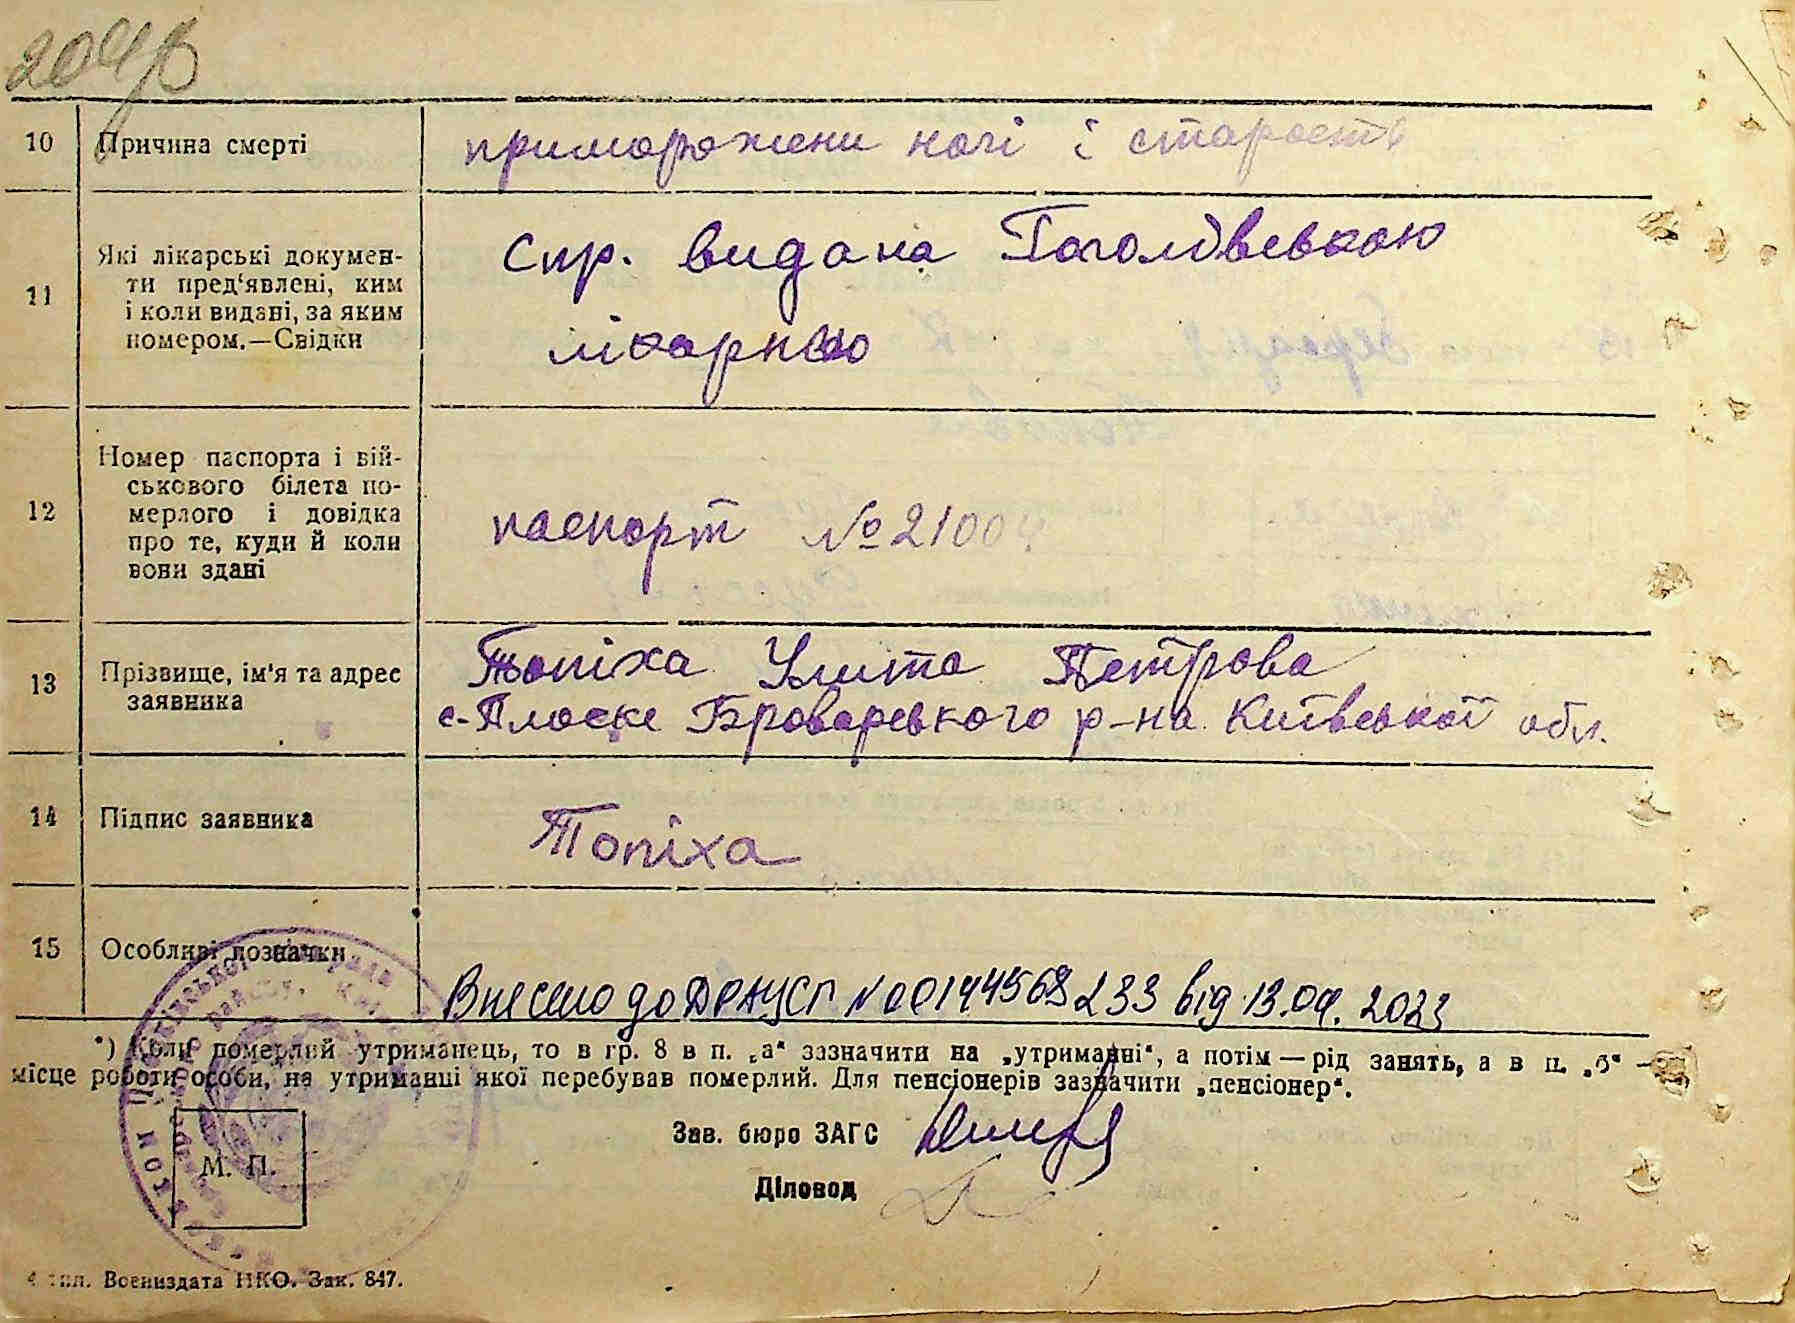 204/в
10 Причина смерті приморожени ногі і старость
11 Які лікарські докумен-
ти пред‘явлені, ким
і коли видані, за яким
номером.—Свідки
Спр. видана Гоголівською
лікарнею
12 Номер паспорта і вій-
ськового білета по-
мерлого і довідка
про те, куди й коли
вони здані
паспорт № 21004
13 Прізвище, ім'я та адрес
заявника
Топіха Улита Петрова
с-Плоске Броварського р-на Київської обл.
14 Підпис заявника Топіха
15 Особливі позначки
Внесено до ДРАЦСГ №00144568233 від 13.09.2023
*) Коли померлий утриманець, то в гр. 8 в п. „а“ зазначити на „утриманні“, а потім — рід занять, а в п. „б“ —
місце роботи особи, на утриманні якої перебував померлий. Для пенсіонерів зазначити „пенсіонер“.
Зав. бюро ЗАГС
М. П.
Діловод
4 тип. Воениздата НКО. Зак. 847.